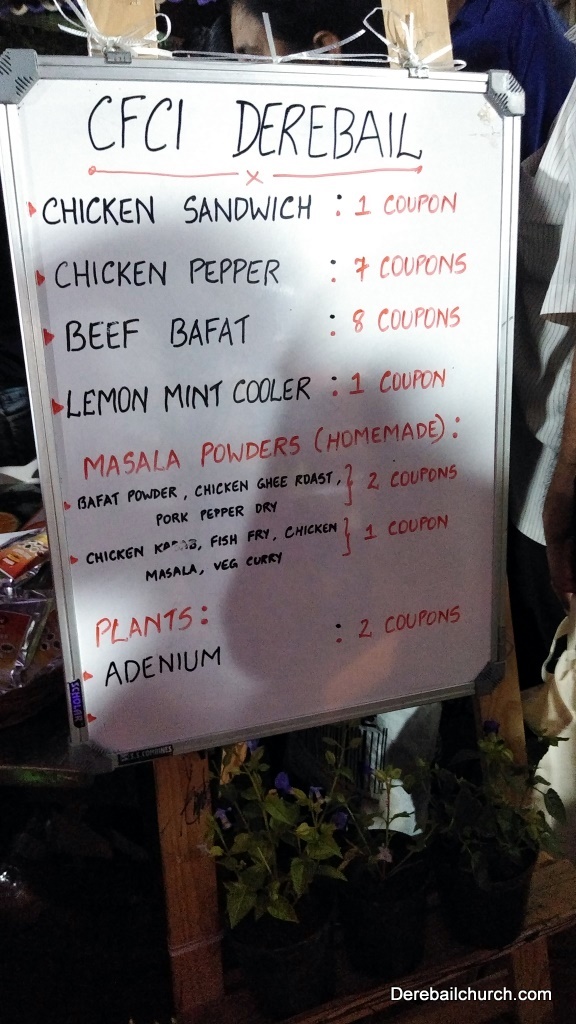 CFCI DEREBAIL
CHICKEN SANDWICH : 1 COUPON
CHICKEN PEPPER : 7 COUPONS
BEEF BAFAT : 8 COUPONS
LEMON MINT COOLER : 1 COUPON
MASALA POWDERS (HOMEMADE) :
BAFAT POWDER, CHICKEN GHEE ROAST, } 2 COUPONS
PORK PEPPER DRY
CHICKEN KABAB, FISH FRY, CHICKEN } 1 COUPON
MASALA, VEG CURRY
PLANTS :
ADENIUM : 2 COUPONS
SCHOLAR
Derebailchurch.com